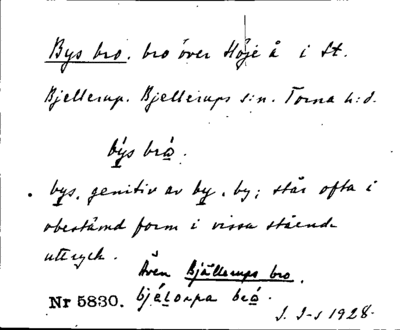 Bys bro. bro över Höje å i St.
Bjellerup. Bjellerups s:n. Torna h:d.
býs brо̄.
bys, genitiv av by, by; står ofta i
obestämd form i vissa stående
uttryck.
Även Bjällerups bro.
Nr 5830. bjälorpa bro.
J. I-s 1928.